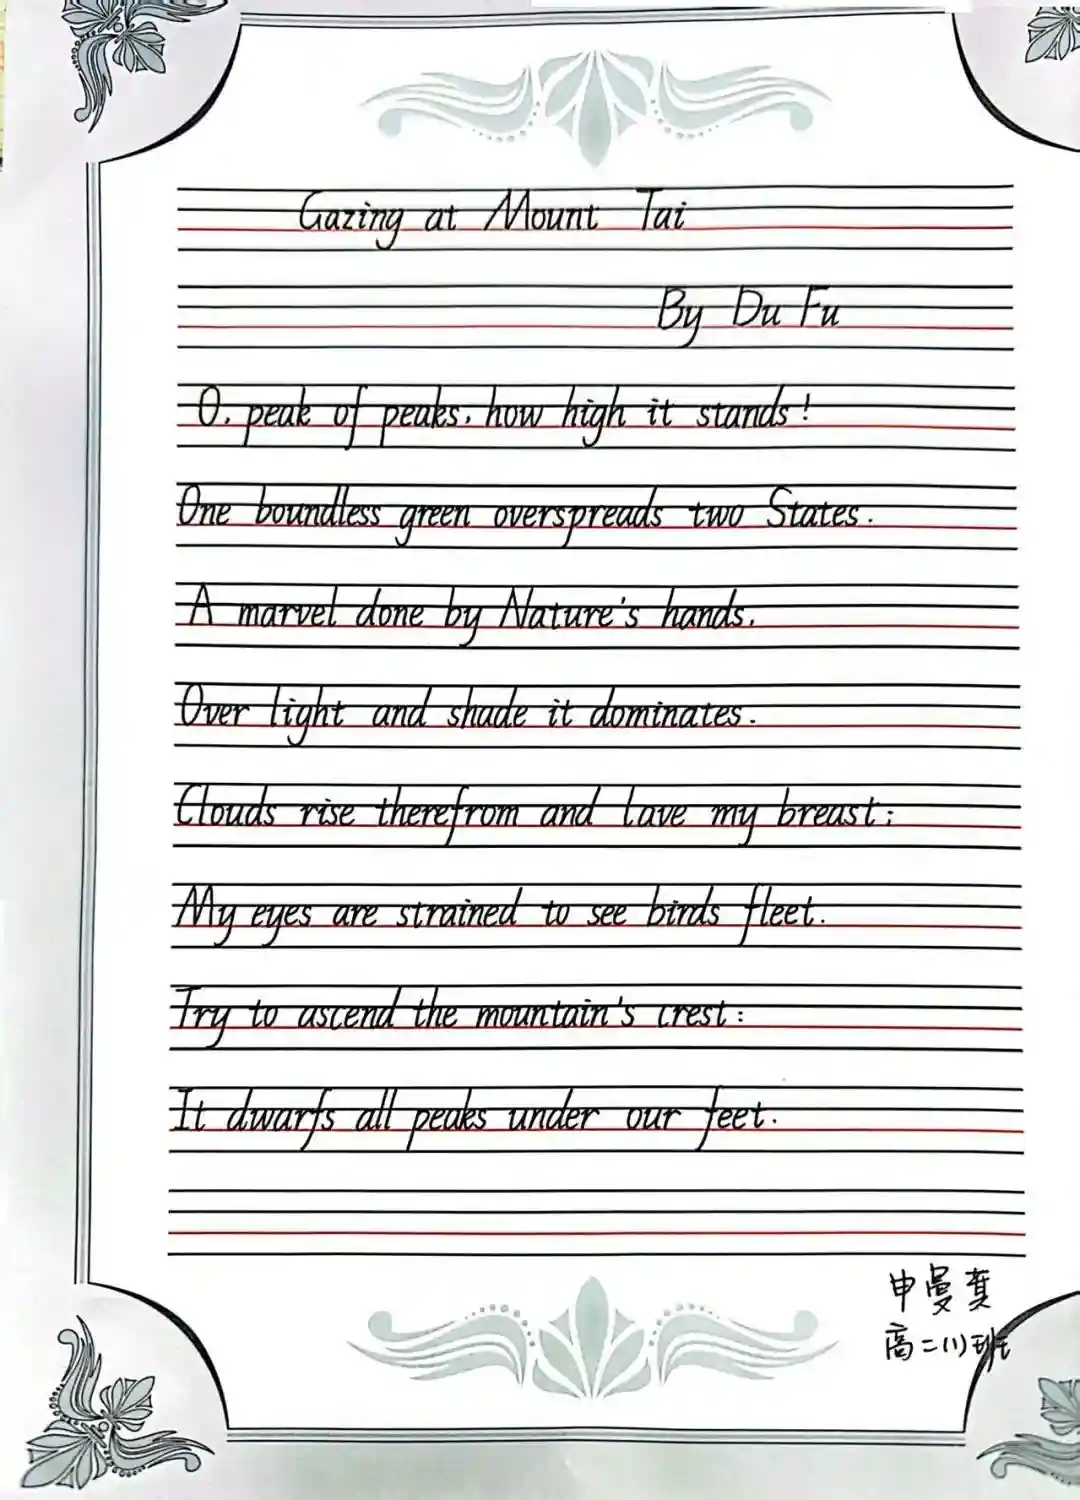 Gazing at Mount Tai
By Du Fu
O, peak of peaks, how high it stands!
One boundless green overspreads two States.
A marvel done by Nature's hands,
Over light and shade it dominates.
Clouds rise therefrom and lave my breast;
My eyes are strained to see birds fleet.
Try to ascend the mountain's crest:
It dwarfs all peaks under our feet.
申曼
高二(1)班